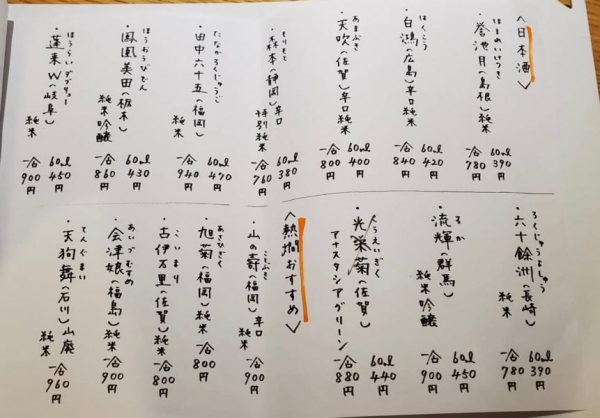 <日本酒>
ほまれいけつき
・誉池月(島根)純米
60ml 390円
一合 780円
はくこう
・白鴻(広島)辛口純米
60ml 420円
一合 840円
あまぶき
・天吹(佐賀)辛口純米
60ml 400円
一合 800円
もりもと
・森本(静岡)辛口
特別純米
60ml 380円
一合 760円
たなかろくじゅうご
・田中六十五(福岡)
純米
60ml 470円
一合 940円
ほうおうびでん
・鳳凰美田(栃木)
純米吟醸
60ml 430円
一合 860円
ほうらいダブリュー
・蓬莱W(岐阜)
純米
60ml 450円
一合 900円
ろくじゅうよしゅう
・六十餘洲(長崎)
純米
60ml 390円
一合 780円
るか
・流輝(群馬)
純米吟醸
60ml 450円
一合 900円
こうえいぎく
・光栄菊(佐賀)
アナスタシアグリーン
60ml 440円
一合 880円
<熱燗おすすめ>
ことぶき
・山の壽(福岡)辛口
純米
一合 900円
あさひぎく
・旭菊(福岡)純米
一合 800円
こいまり
・古伊万里(佐賀)純米
一合 800円
あいづむすめ
・会津娘(福島)純米
一合 900円
てんぐまい
・天狗舞(石川)山廃
純米
一合 960円